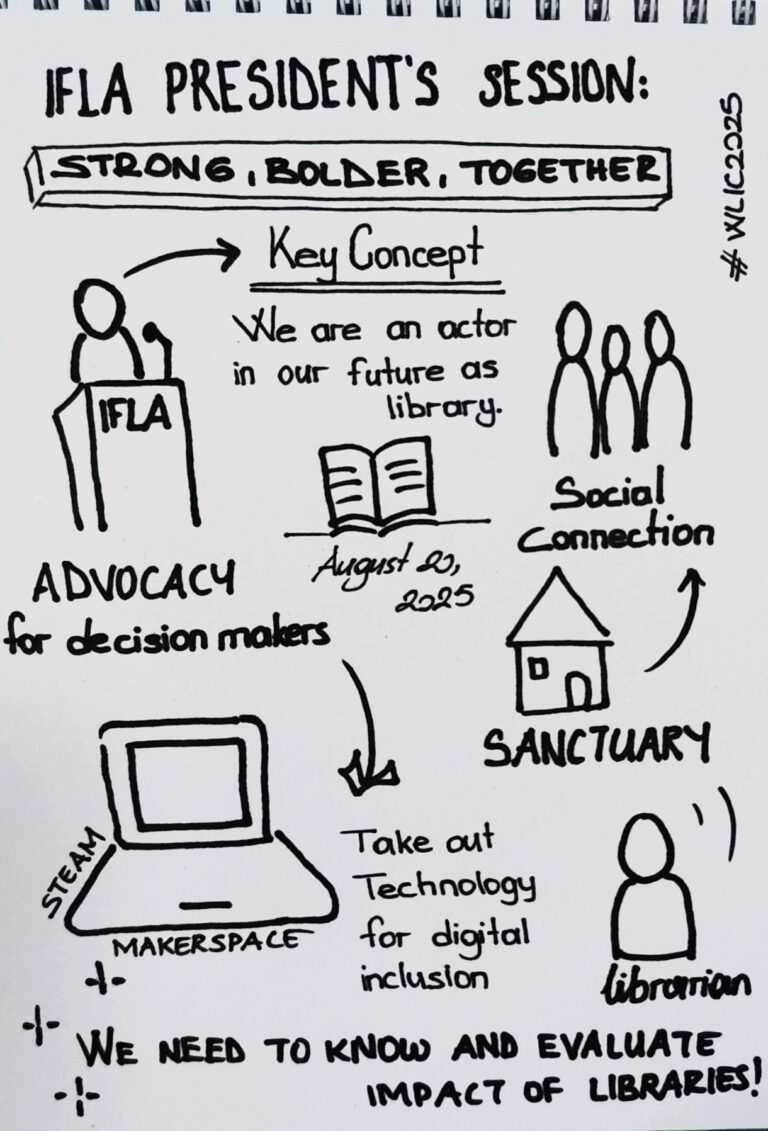 IFLA PRESIDENT'S SESSION:
STRONG, BOLDER, TOGETHER
#WLIC2025
Key Concept
We are an actor
in our future as
library.
IFLA
August 20,
2025
Social
Connection
ADVOCACY
for decision makers
SANCTUARY
STEAM
MAKERSPACE
Take out
Technology
for digital
inclusion
librarian
WE NEED TO KNOW AND EVALUATE
IMPACT OF LIBRARIES!